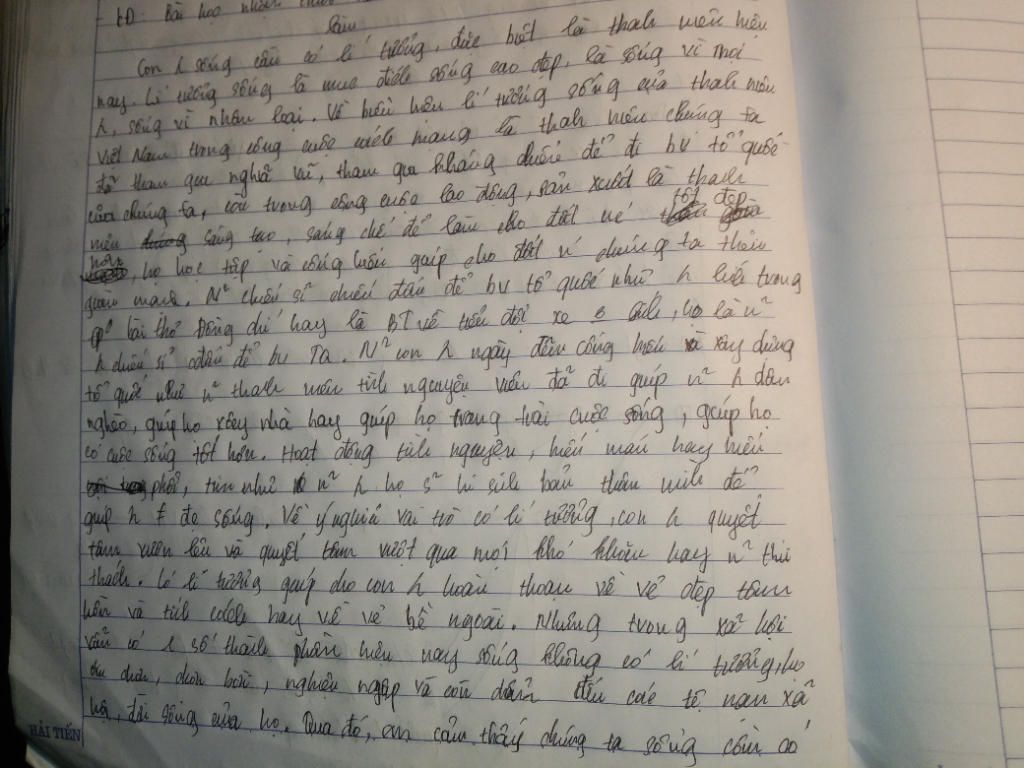 Bài học nhận thức
làm
Con h sống cần có lí tưởng, đặc biệt là thanh niên hiện
nay. Lí tưởng sống là mục đích sống cao đẹp, là sống vì mọi
h, sống vì nhân loại. Về biểu hiện lí tưởng sống của thanh niên
Việt Nam trong công cuộc cách mạng là thanh niên chúng ta
đã tham gia nghĩa vụ, tham gia kháng chiến để đi bv tổ quốc
của chúng ta, còn trong công cuộc lao động, sản xuất là thanh
niên sáng tạo, sáng chế để làm cho đất nc tốt đẹp
hơn, họ học tập và cống hiến giúp cho đất n chúng ta thêm
giàu mạnh. N² chiến sĩ chiến đấu để bv tổ quốc như h lính trong
bài thơ Đồng chí hay là BT về tiểu đội xe kính, họ là n²
h chiến sĩ để bv TQ. N² con h ngày đêm cống hiến và xây dựng
tổ quốc như n² thanh niên tình nguyện viên đã đi giúp n² h dân
nghèo, giúp họ xây nhà hay giúp họ trang trải cuộc sống, giúp họ
có cuộc sống tốt hơn. Hoạt động tình nguyện, hiến máu hay hiến
phổi, n² h họ s² hi sinh bản thân mình để
giúp h ≠ đc sống. Về ý nghĩa vai trò có lí tưởng, con h quyết
tâm vươn lên và quyết tâm vượt qua mọi khó khăn hay n² thử
thách. Có lí tưởng giúp cho con h hoàn thoan về vẻ đẹp tâm
hồn và tính cách hay về vẻ bề ngoài. Nhưng trong xã hội
vẫn có 1 số thành phần hiện nay sống không có lí tưởng, họ
chơi bời, nghiện ngập và còn dẫn đến các tệ nạn xã
hội, đời sống của họ. Qua đó, em cảm thấy chúng ta sống cần có
HẢI TIẾN